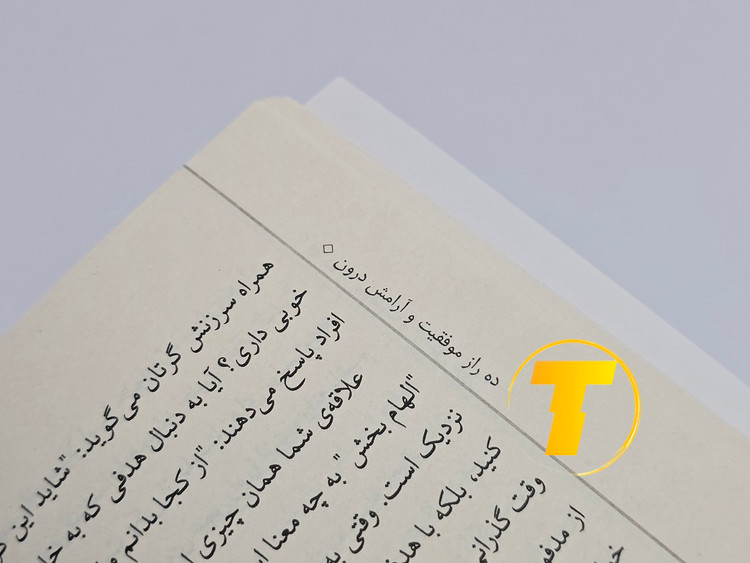 ده راز موفقیت و آرامش درون
همراه سرزنش گرتان می‌گوید: "شاید این
خوبی داری؟ آیا به دنبال هدفی که به
افراد پاسخ می‌دهند: "از کجا بدانم
علاقه‌ی شما همان چیزی
"الهام بخش" به چه معنا
نزدیک است. وقتی به
کنید، بلکه با
وقت گذرانی
از
T